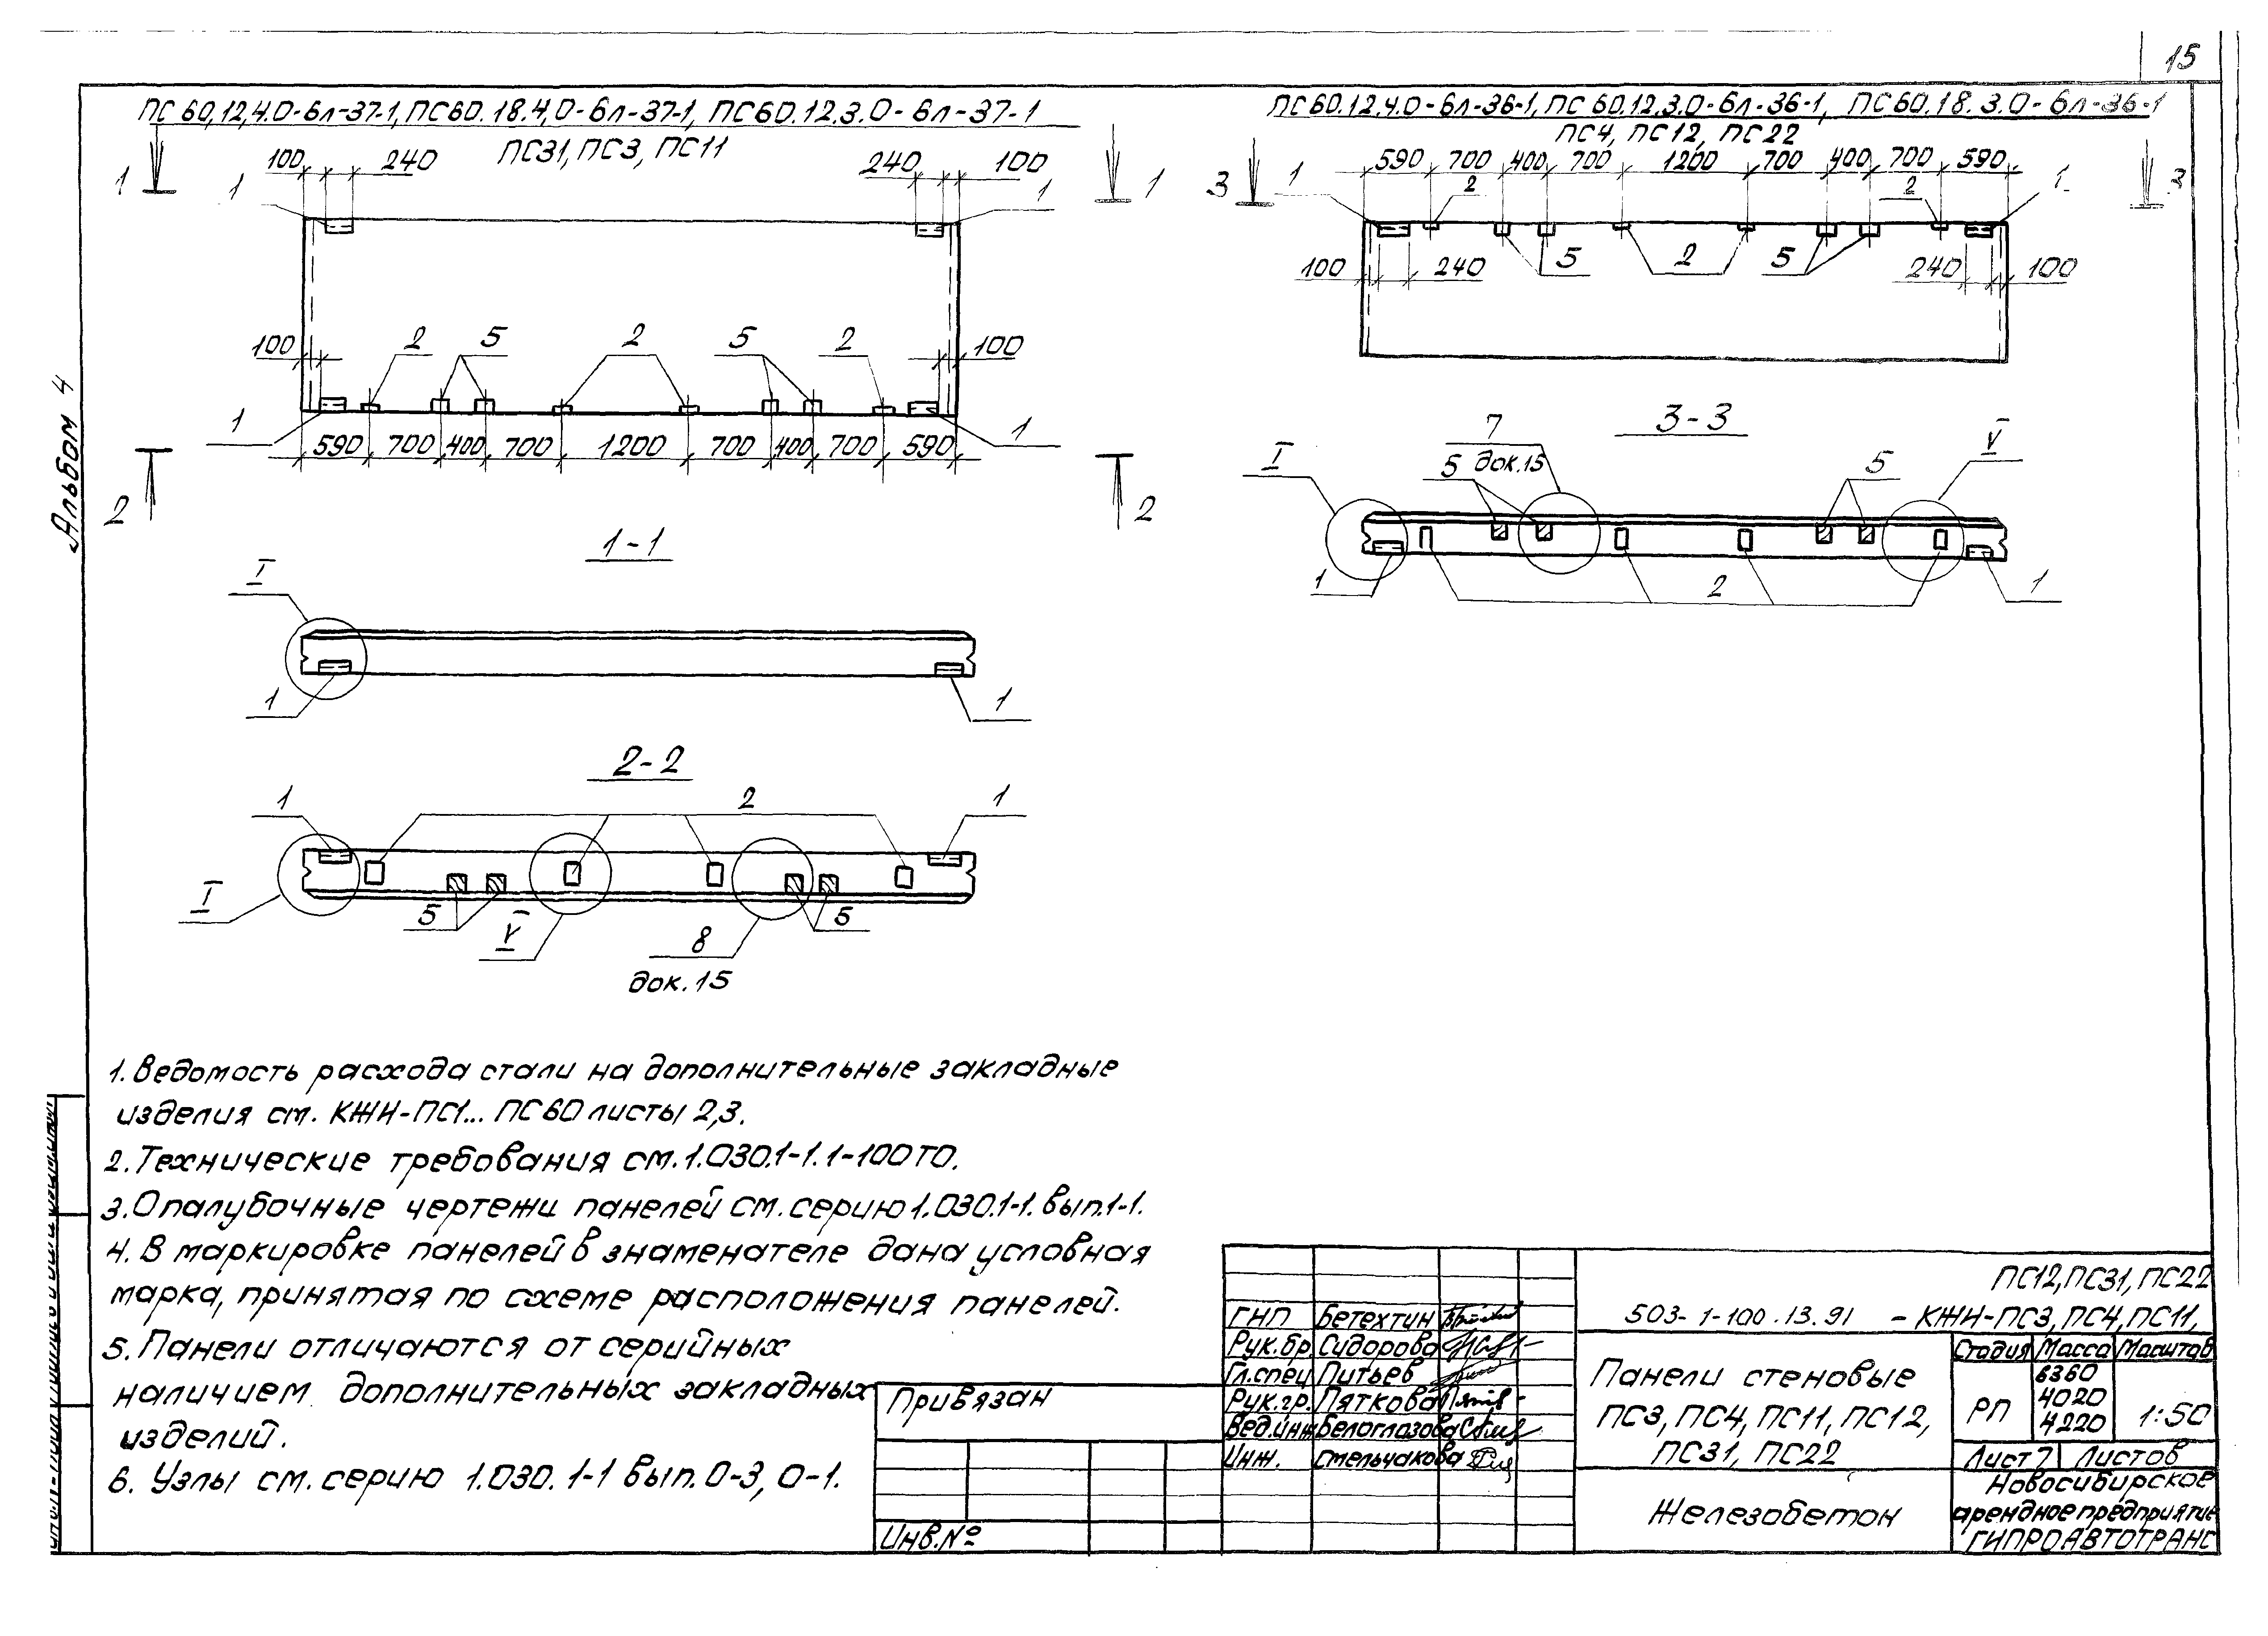 15
Альбом 4
ПС 60.12.4.0-6л-37-1, ПС60.18.4.0-6л-37-1, ПС60.12.3.0-6л-37-1
ПС31, ПС3, ПС11
1 1
100 240 240 100
1 1
100 2 5 2 5 2 100
1 1
590 700 400 700 1200 700 400 700 590
2 2
1-1
I
1 1
2-2
1 2 1
I 5 V 8 5
док.15
ПС60.12.4.0-6л-36-1, ПС 60.12.3.0-6л-36-1, ПС60.18.3.0-6л-36-1
ПС4, ПС12, ПС22
590 700 400 700 1200 700 400 700 590
3 1 2 2 1 3
5 2 5
100 240 240 100
3-3
7
I 5 док.15 5 V
1 2 1
1. Ведомость расхода стали на дополнительные закладные
изделия см. КЖИ-ПС1... ПС60 листы 2,3.
2. Технические требования см. 1.030.1-1.1-100ТО.
3. Опалубочные чертежи панелей см. серию 1.030.1-1. вып.1-1.
4. В маркировке панелей в знаменателе дана условная
марка, принятая по схеме расположения панелей.
5. Панели отличаются от серийных
наличием дополнительных закладных
изделий.
6. Узлы см. серию 1.030.1-1 вып. 0-3, 0-1.
Привязан
Инв.№
ГИП Бетехтин
Рук.бр. Сидорова
Гл.спец Питьев
Рук.гр. Пяткова
Вед.инж Белоглазова
Инж. Смельчакова
ПС12, ПС31, ПС22
503-1-100.13.91 - КЖИ-ПС3, ПС4, ПС11,
Панели стеновые
ПС3, ПС4, ПС11, ПС12,
ПС31, ПС22
Стадия Масса Масштаб
РП 6360 4020 4220 1:50
Лист 7 Листов
Железобетон
Новосибирское
арендное предприятие
ГИПРОАВТОТРАНС